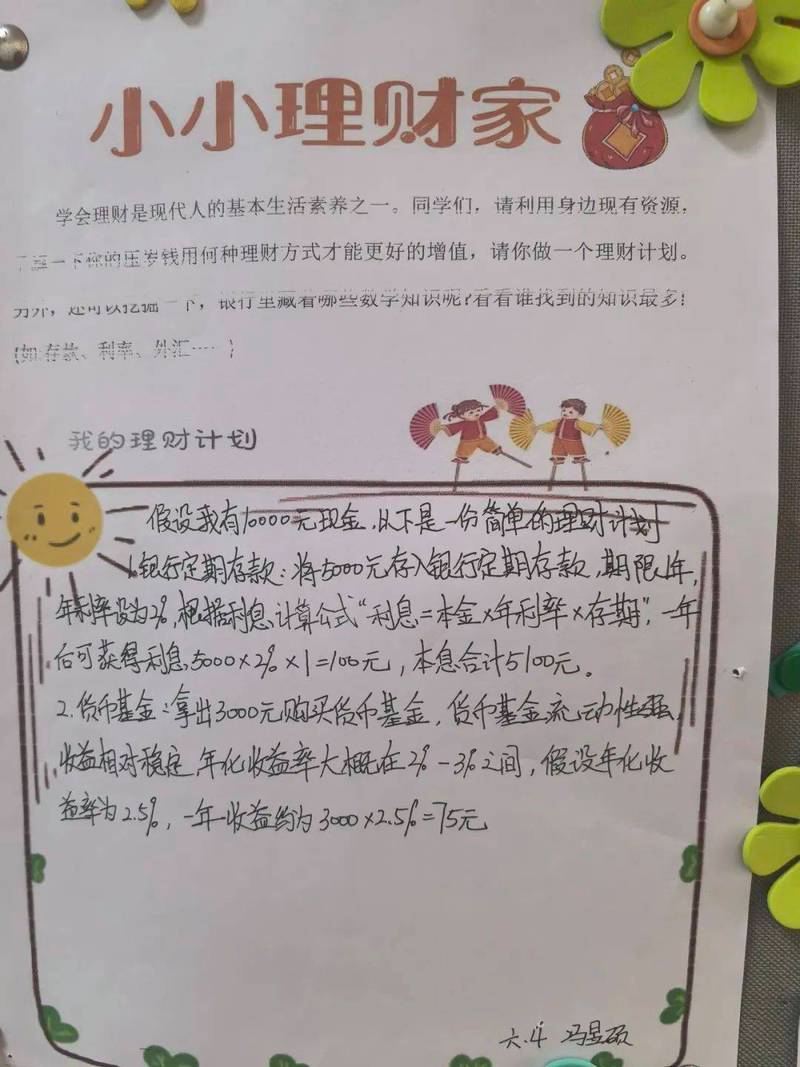 小小理财家
学会理财是现代人的基本生活素养之一。同学们，请利用身边现有资源，
一下你的压岁钱用何种理财方式才能更好的增值，请你做一个理财计划。
另外，还可以挖掘一下，银行里藏着哪些数学知识呢?看看谁找到的知识最多!
(如存款、利率、外汇……)
我的理财计划
假设我有10000元现金，以下是一份简单的理财计划
1.银行定期存款：将5000元存入银行定期存款，期限1年，
年利率设为2%，根据利息计算公式“利息=本金×年利率×存期”，一年
后可获得利息5000×2%×1=100元，本息合计5100元。
2.货币基金：拿出3000元购买货币基金，货币基金流动性强，
收益相对稳定，年化收益率大概在2%-3%之间，假设年化收
益率为2.5%，一年收益约为3000×2.5%=75元
六.4 冯昱硕